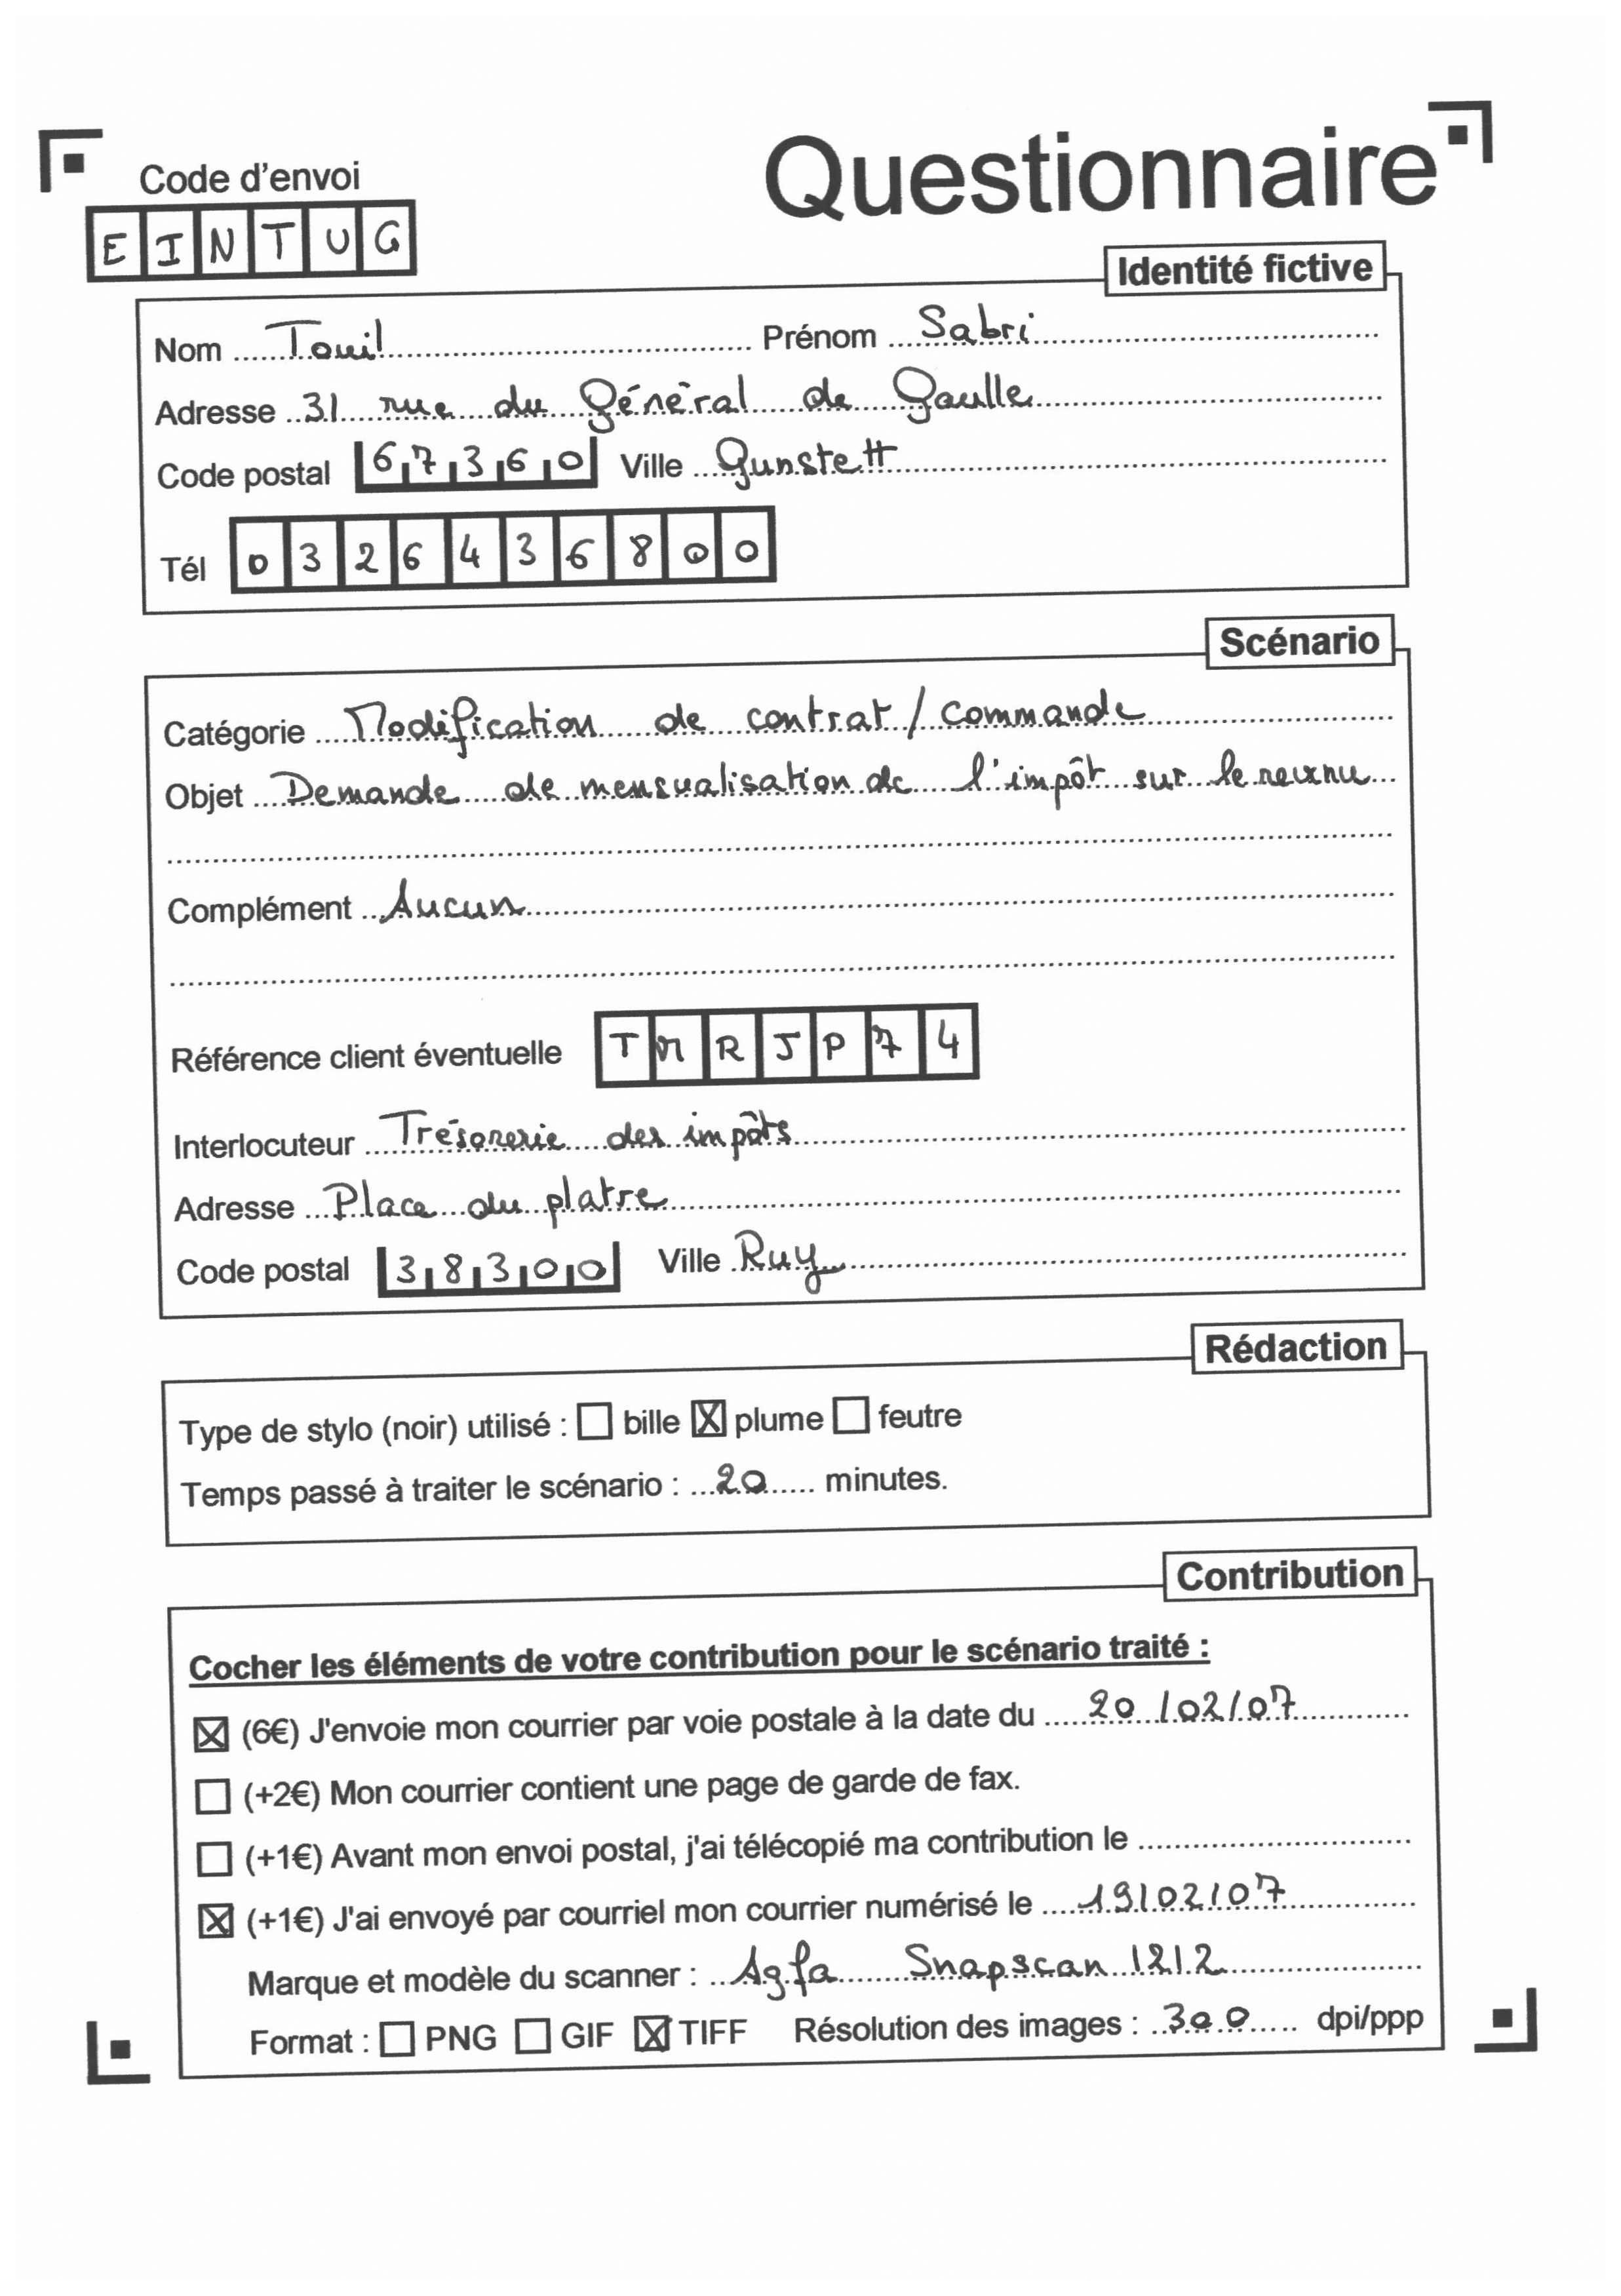 Questionnaire
Code d'envoi
EINTUG
Identité fictive
Nom Touil Prénom Sabri
Adresse 31 rue du Général de Gaulle
Code postal 67360 Ville Gunstett
Tél 0326436800
Scénario
Catégorie Modification de contrat / commande
Objet Demande de mensualisation de l'impôt sur le revenu
Complément Aucun
Référence client éventuelle TMRJP74
Interlocuteur Trésorerie des impôts
Adresse Place du platre
Code postal 38300 Ville Ruy
Rédaction
Type de stylo (noir) utilisé : ☐ bille ☒ plume ☐ feutre
Temps passé à traiter le scénario : 20 minutes.
Contribution
Cocher les éléments de votre contribution pour le scénario traité :
☒ (6€) J'envoie mon courrier par voie postale à la date du 20/02/07
☐ (+2€) Mon courrier contient une page de garde de fax.
☐ (+1€) Avant mon envoi postal, j'ai télécopié ma contribution le
☒ (+1€) J'ai envoyé par courriel mon courrier numérisé le 19/02/07
Marque et modèle du scanner : Agfa Snapscan 1212
Format : ☐ PNG ☐ GIF ☒ TIFF Résolution des images : 300 dpi/ppp